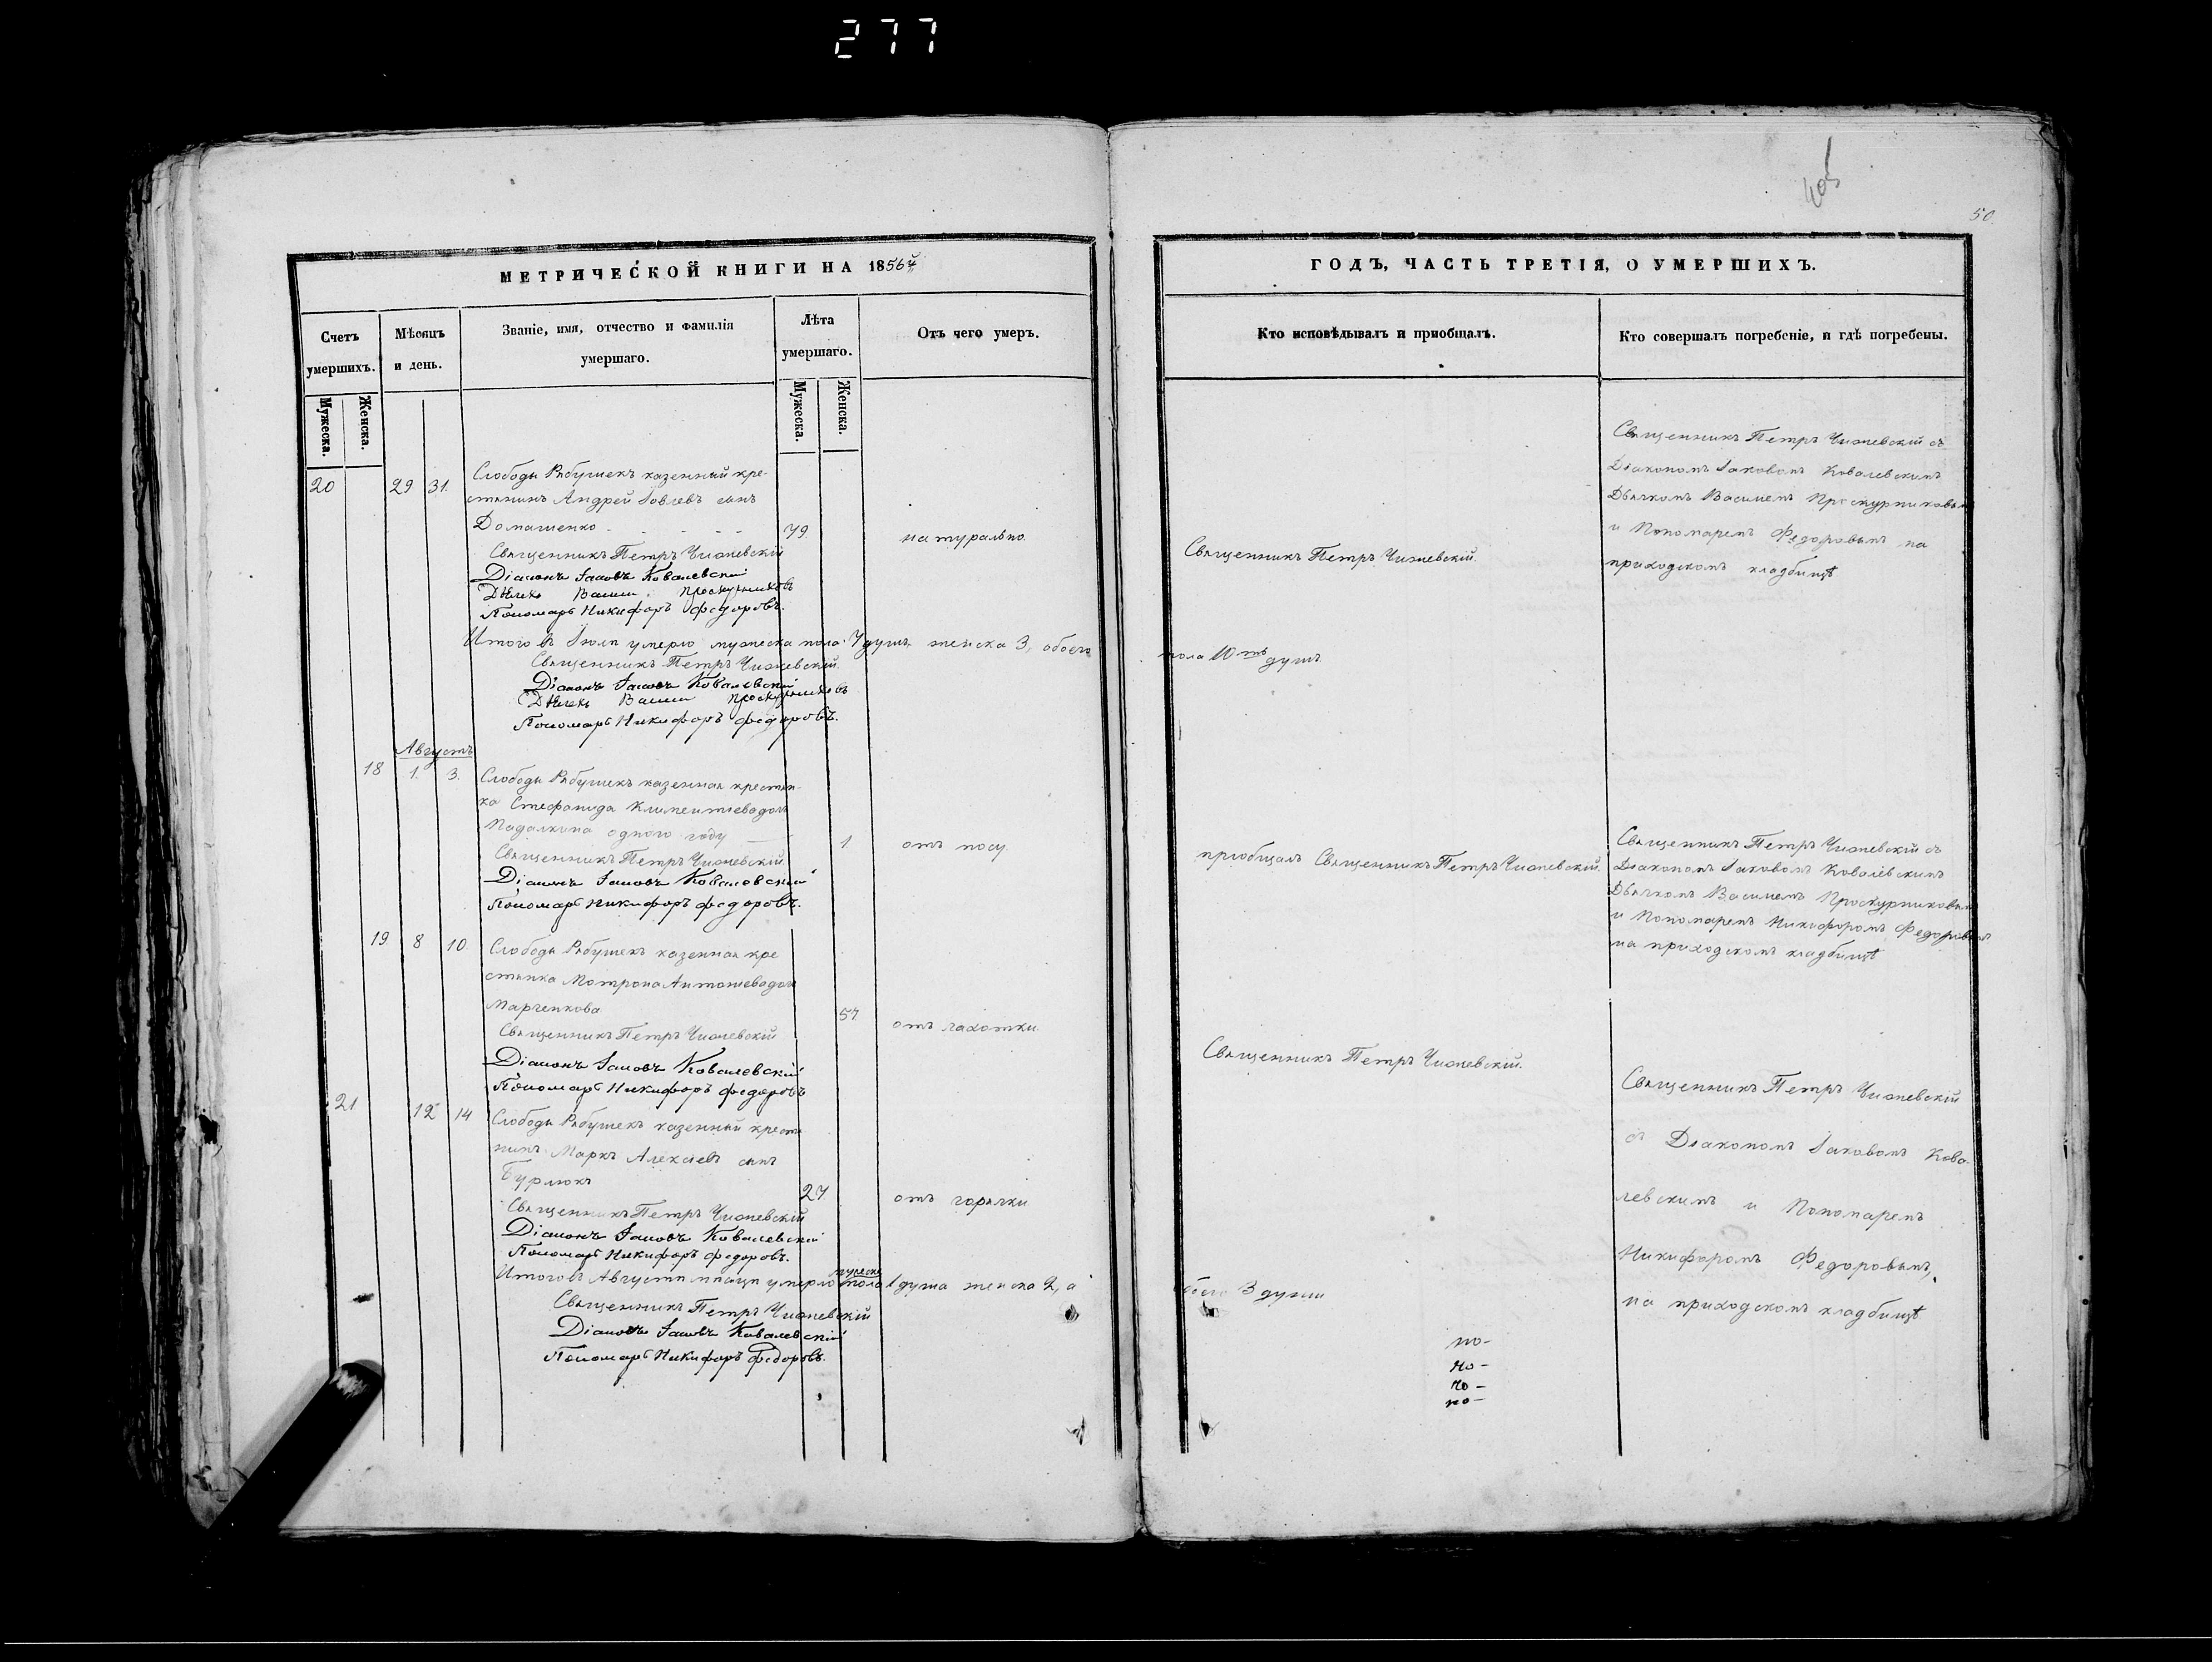 277
405
50
МЕТРИЧЕСКОЙ КНИГИ НА 1856й
Счетъ умершихъ.
Мужеска.
Женска.
Мѣсяцъ и день.
Званіе, имя, отчество и фамилія
умершаго.
Лѣта
умершаго.
Мужеска.
Женска.
Отъ чего умеръ.
20 29 31.
Слободы Рябушекъ казенный кре-
стьянинъ Андрей Іовлевъ сынъ
Домашенко 79 натурально
Священникъ Петръ Чижевскій
Діаконъ Іаковъ Ковалевскій
Дьячекъ Васили Проскурниковъ
Пономарь Никифоръ Федоровъ.
Итого въ Іюлѣ умерло мужеска пола 7 душъ, женска 3, обоего
Священникъ Петръ Чижевскій
Діаконъ Іаковъ Ковалевскій
Дьячекъ Васили Проскурниковъ
Пономарь Никифоръ Федоровъ.
Августъ
18 1. 3.
Слободы Рябушекъ казенная крестьян-
ка Стефанида Климентіева дочь
Падалкина одного году 1 отъ посу
Священникъ Петръ Чижевскій
Діаконъ Іаковъ Ковалевскій
Пономарь Никифоръ Федоровъ.
19 8 10
Слободы Рябушекъ казенная кре
стьянка Мотрона Антониева дочь
Марченкова 57 отъ чахотки
Священникъ Петръ Чижевскій
Діаконъ Іаковъ Ковалевскій
Пономарь Никифоръ Федоровъ
21 12 14
Слободы Рябушекъ казенный крестя
нинъ Маркъ Алексіевъ сынъ
Бурлюкъ 27 отъ горячки
Священникъ Петръ Чижевскій
Діаконъ Іаковъ Ковалевскій
Пономарь Никифоръ Федоровъ.
мужеска
Итого въ Августѣ мѣсяцѣ умерло пола 1 душа женска 2, а
Священникъ Петръ Чижевскій
Діаконъ Іаковъ Ковалевскій
Пономарь Никифоръ Федоровъ.
ГОДЪ, ЧАСТЬ ТРЕТІЯ, О УМЕРШИХЪ.
Кто исповѣдывалъ и пріобщалъ.
Кто совершалъ погребеніе, и гдѣ погребены.
Священникъ Петръ Чижевскій.
Священникъ Петръ Чижевскій съ
Діакономъ Іаковомъ Ковалевскимъ
Дьячкомъ Василіемъ Проскурниковымъ
и Пономаремъ Федоровымъ на
приходскомъ кладбищѣ
пола 10ть душъ
пріобщалъ Священникъ Петръ Чижевскій.
Священникъ Петръ Чижевскій съ
Діакономъ Іаковомъ Ковалевскимъ
Дьячкомъ Василіемъ Проскурниковым
и Пономаремъ Никифоромъ Федоровым
на приходскомъ кладбищѣ
Священникъ Петръ Чижевскій.
Священникъ Петръ Чижевскій
съ Діакономъ Іаковомъ Кова-
левскимъ и Пономаремъ
Никифоромъ Федоровымъ,
на приходскомъ кладбищѣ
обоего 3 души
по-
по-
по-
по-